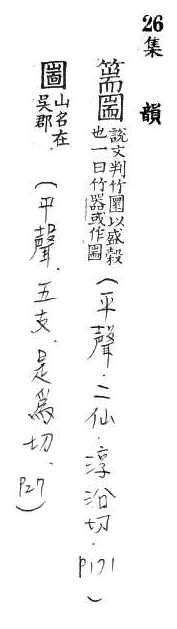 26 集 韻
篅圌 說文判竹圜以盛穀也一曰竹器或作圌（平聲．二仙．淳沿切．P171）
圌 山名在吳郡（平聲、五支、是爲切、P27）